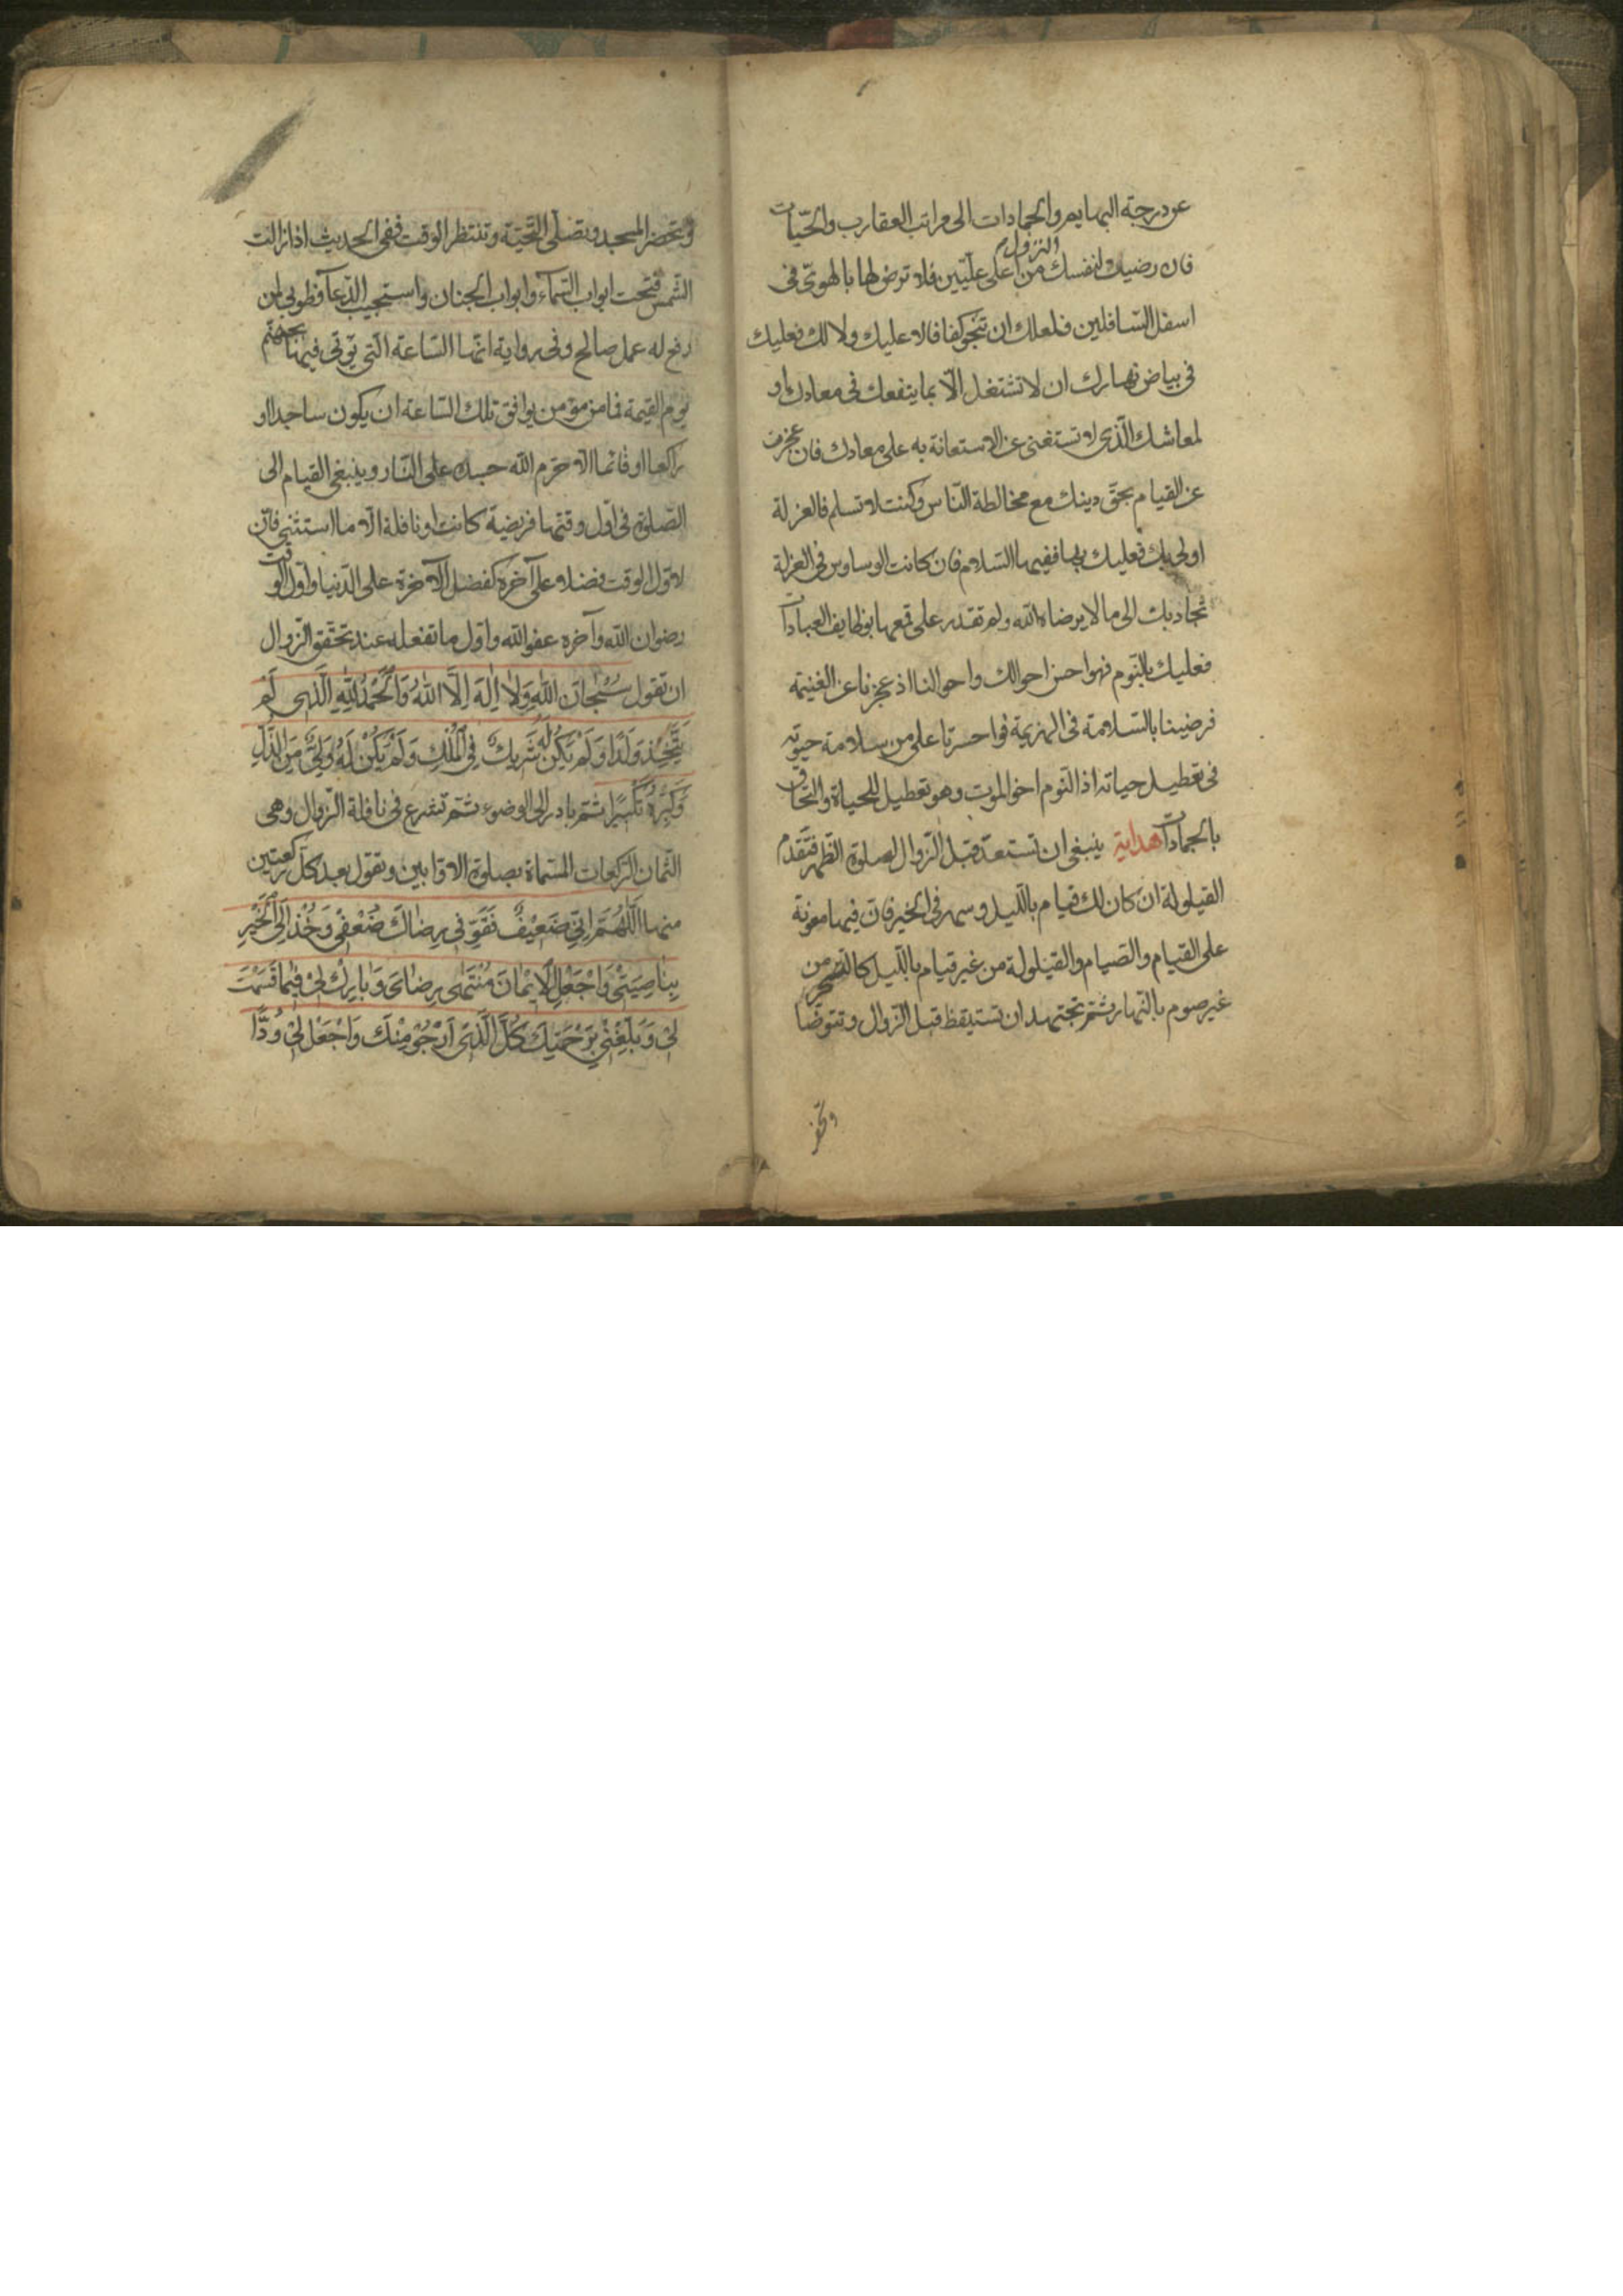 عن درجة البهايم والجمادات الى مراتب العقارب والحيّات
فان رضيت لنفسك من النزول من اعلى علّيّين فلا ترض لها بالهوىّ فى
اسفل السّافلين فلعلك ان تنجو كفافا لا عليك ولا لك فعليك
فى بياض نهارك ان لا تشتغل الّا بما ينفعك فى معادك او
لمعاشك الّذى لا تستغنى عن الاستعانة به على معادك فان عجزت
عن القيام بحقّ دينك مع مخالطة النّاس وكنت لا تسلم فالعزلة
اولى بك فعليك بها ففيها السّلام فان كانت الوساوس فى العزلة
تجاذبك الى ما لا يرضاه اللّه ولم تقدر على قمعها بوظايف العبادات
فعليك بالنّوم فهو احسن احوالك واحوالنا اذ عجزنا عن الغنيمة
فرضينا بالسّلامة فى الهزيمة فواحسرتا على من سلامة حيوته
فى تعطيل حياته اذ النّوم اخو الموت وهو تعطيل للحياة والتحاق
بالجمادات هداية ينبغى ان تستعدّ قبل الزّوال لصلوة الظّهر فتقدم
القيلولة ان كان لك قيام باللّيل وسهر فى الخير فانّ فيها معونة
على القيام والصّيام والقيلولة من غير قيام باللّيل كالتسحر من
غير صوم بالنّهار ثمّ تجتهد ان تستيقظ قبل الزّوال وتتوضّا
وتحضر
وتحضر المسجد وتصلّى التّحيّة وتنتظر الوقت ففى الحديث اذا زالت
الشّمس فتحت ابواب السّمآء وابواب الجنان واستجيب الدّعآ فطوبى لمن
رفع له عمل صالح وفى رواية انّها السّاعة الّتى يؤتى فيها بجهنّم
يوم القيمة فما من مؤمن يوافق تلك السّاعة ان يكون ساجدا او
راكعا او قائما الّا حرّم اللّه جسده على النّار وينبغى القيام الى
الصّلوة فى اوّل وقتها فريضة كانت او نافلة الّا ما استثنى فانّ
لاوّل الوقت فضلا على آخره كفضل الآخرة على الدّنيا واوّل الوقت
رضوان اللّه وآخره عفو اللّه واوّل ما تفعله عند تحقّق الزّوال
ان تقول سُبْحانَ اللّهِ وَلا اِلهَ اِلَّا اللّهُ وَالْحَمْدُ لِلّهِ الَّذى لَمْ
يَتَّخِذْ وَلَدًا وَلَمْ يَكُنْ لَهُ شَريكٌ فِى الْمُلْكِ وَلَمْ يَكُنْ لَهُ وَلِىٌّ مِنَ الذُّلِّ
وَكَبِّرْهُ تَكْبيرًا ثمّ بادر الى الوضوء ثمّ تشرع فى نافلة الزّوال وهى
الثّمان الرّكعات المسّماة بصلوة الاوّابين وتقول بعد كلّ ركعتين
منها اللّهُمَّ اِنّى ضَعيْفٌ فَقَوِّ فى رِضاكَ ضَعْفى وَخُذْ اِلَى الْخَيْرِ
بِناصِيَتى وَاجْعَلِ الْايمانَ مُنْتَهى رِضائى وَبارِكْ لى فيما قَسَمْتَ
لى وَبَلِّغْنى بِرَحْمَتِكَ كُلَّ الَّذى اَرْجُوْ مِنْكَ وَاجْعَلْ لى وُدًّا